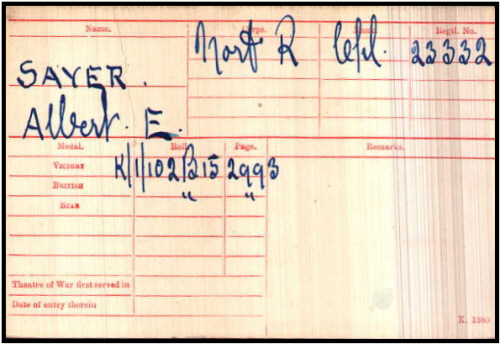 Name. Corps. Rank. Regtl. No.
Norf R Cpl. 23332
SAYER.
Albert. E.
Medal. Roll. Page. Remarks.
VICTORY K/1/102/B15 2993
BRITISH " "
STAR
Theatre of War first served in
Date of entry therein
K. 1380